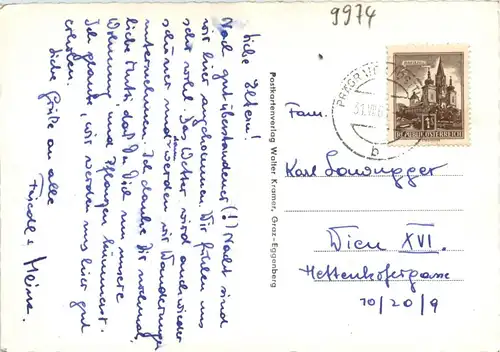 9974
Liebe Eltern!
Nach gut überstandener (!) Nacht sind
wir hier angekommen. Wir fühlen uns
sehr wohl. Das Wetter wird auch wieder
schöner und dann werden wir Wanderungen
unternehmen. Ich danke Dir nochmals,
liebe Mutti, daß Du Dich um unsere
Wohnung und Pflanzen kümmerst.
Ich glaube, wir werden uns hier gut
erholen.
Liebe Grüße an alle
Friedl + Heinz.
Postkartenverlag Walter Kramer, Graz-Eggenberg
PRÄGRATEN
b
REPUBLIK ÖSTERREICH
Fam.
Karl
Wien XVI.
Hettenkofergasse
10/20/9